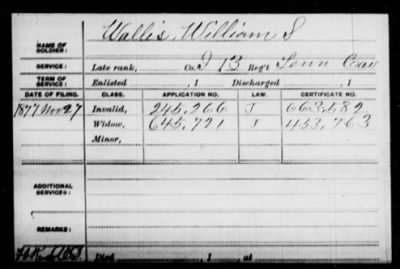 Wallis, William S
NAME OF SOLDIER:
SERVICE: Late rank, Co. I 13 Reg't Tenn Cav
TERM OF SERVICE: Enlisted , 1 Discharged , 1
DATE OF FILING. CLASS. APPLICATION NO. LAW. CERTIFICATE NO.
1877 Nov 27 Invalid, 245,266 J 663,582
Widow, 645,721 J 453,763
Minor,
ADDITIONAL SERVICES:
REMARKS:
Died , 1 , at